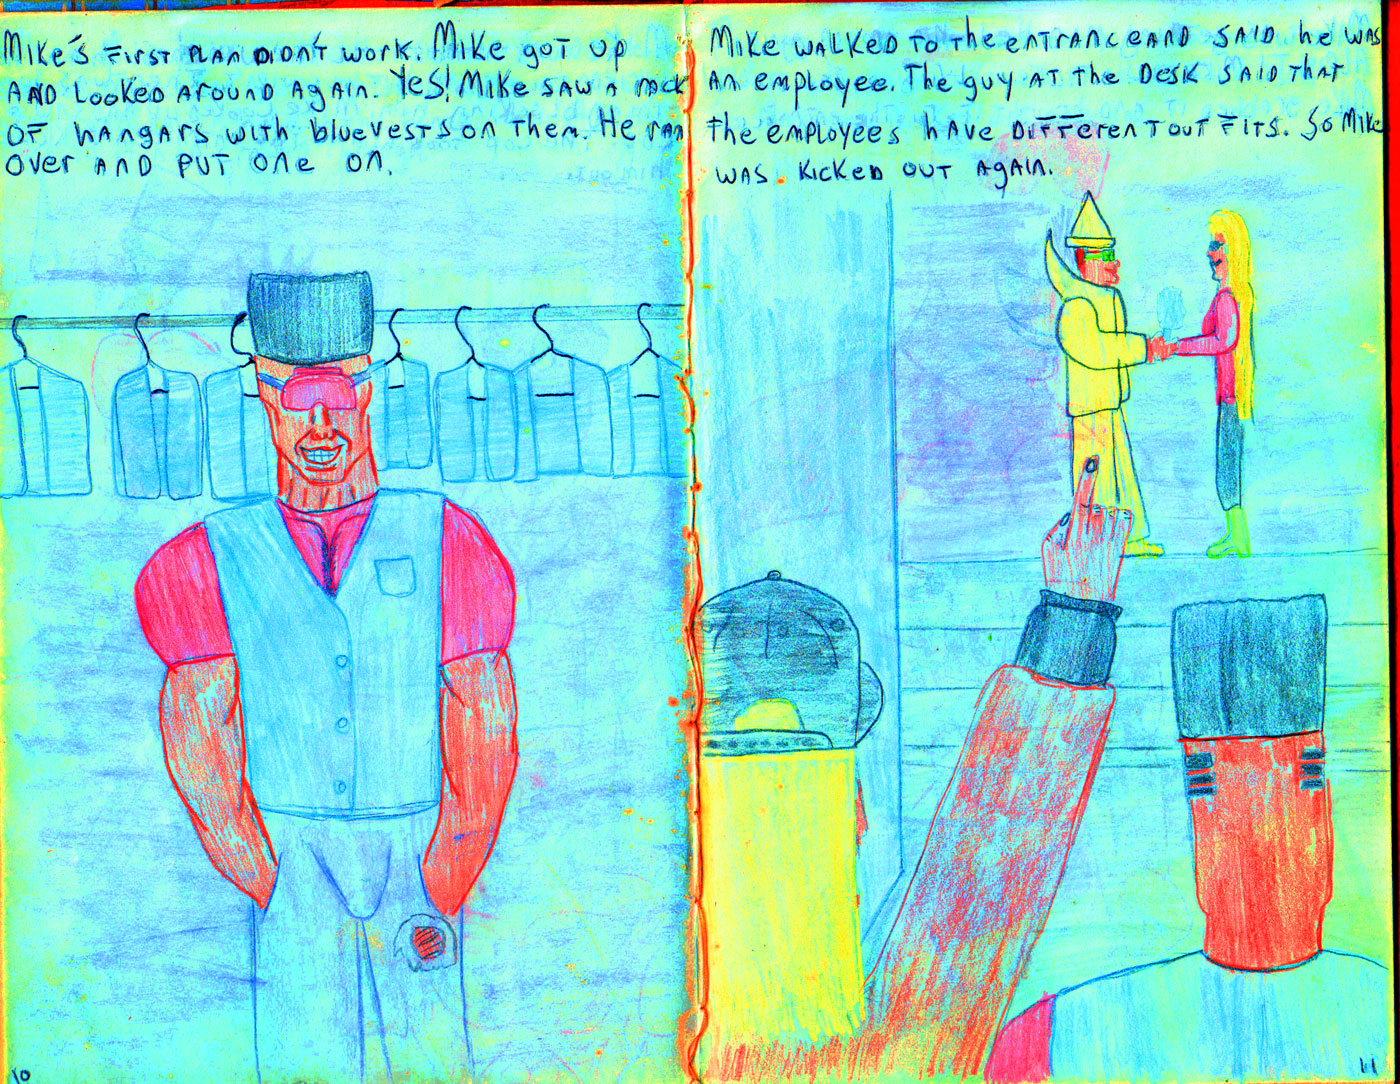 Mike's first plan didn't work. Mike got up
and looked around again. Yes! Mike saw a rack
of hangars with blue vests on them. He ran
over and put one on.
10
Mike walked to the entrance and said he was
an employee. The guy at the desk said that
the employees have different outfits. So Mike
was kicked out again.
11